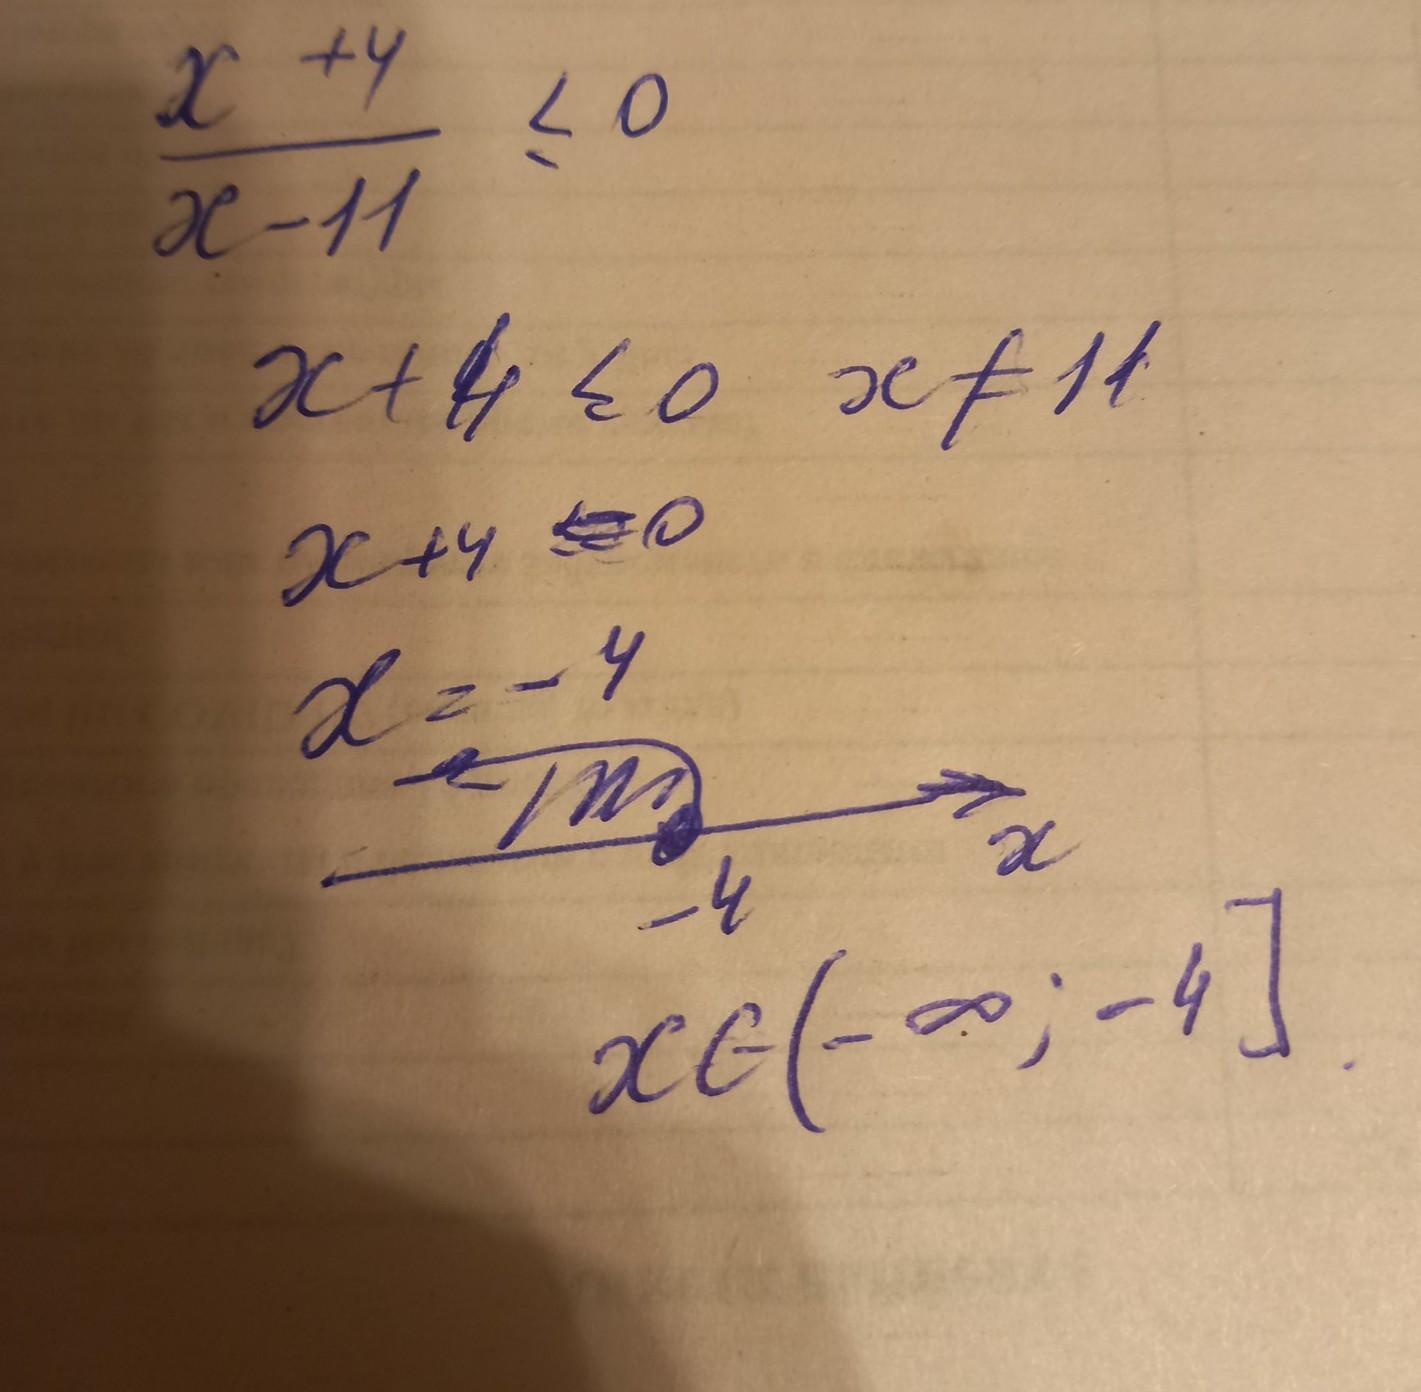 x + 4
x - 11
≤ 0
x + 4 ≤ 0 x ≠ 11
x + 4 = 0
x = - 4
x
- 4
x ∈ (- ∞; - 4].